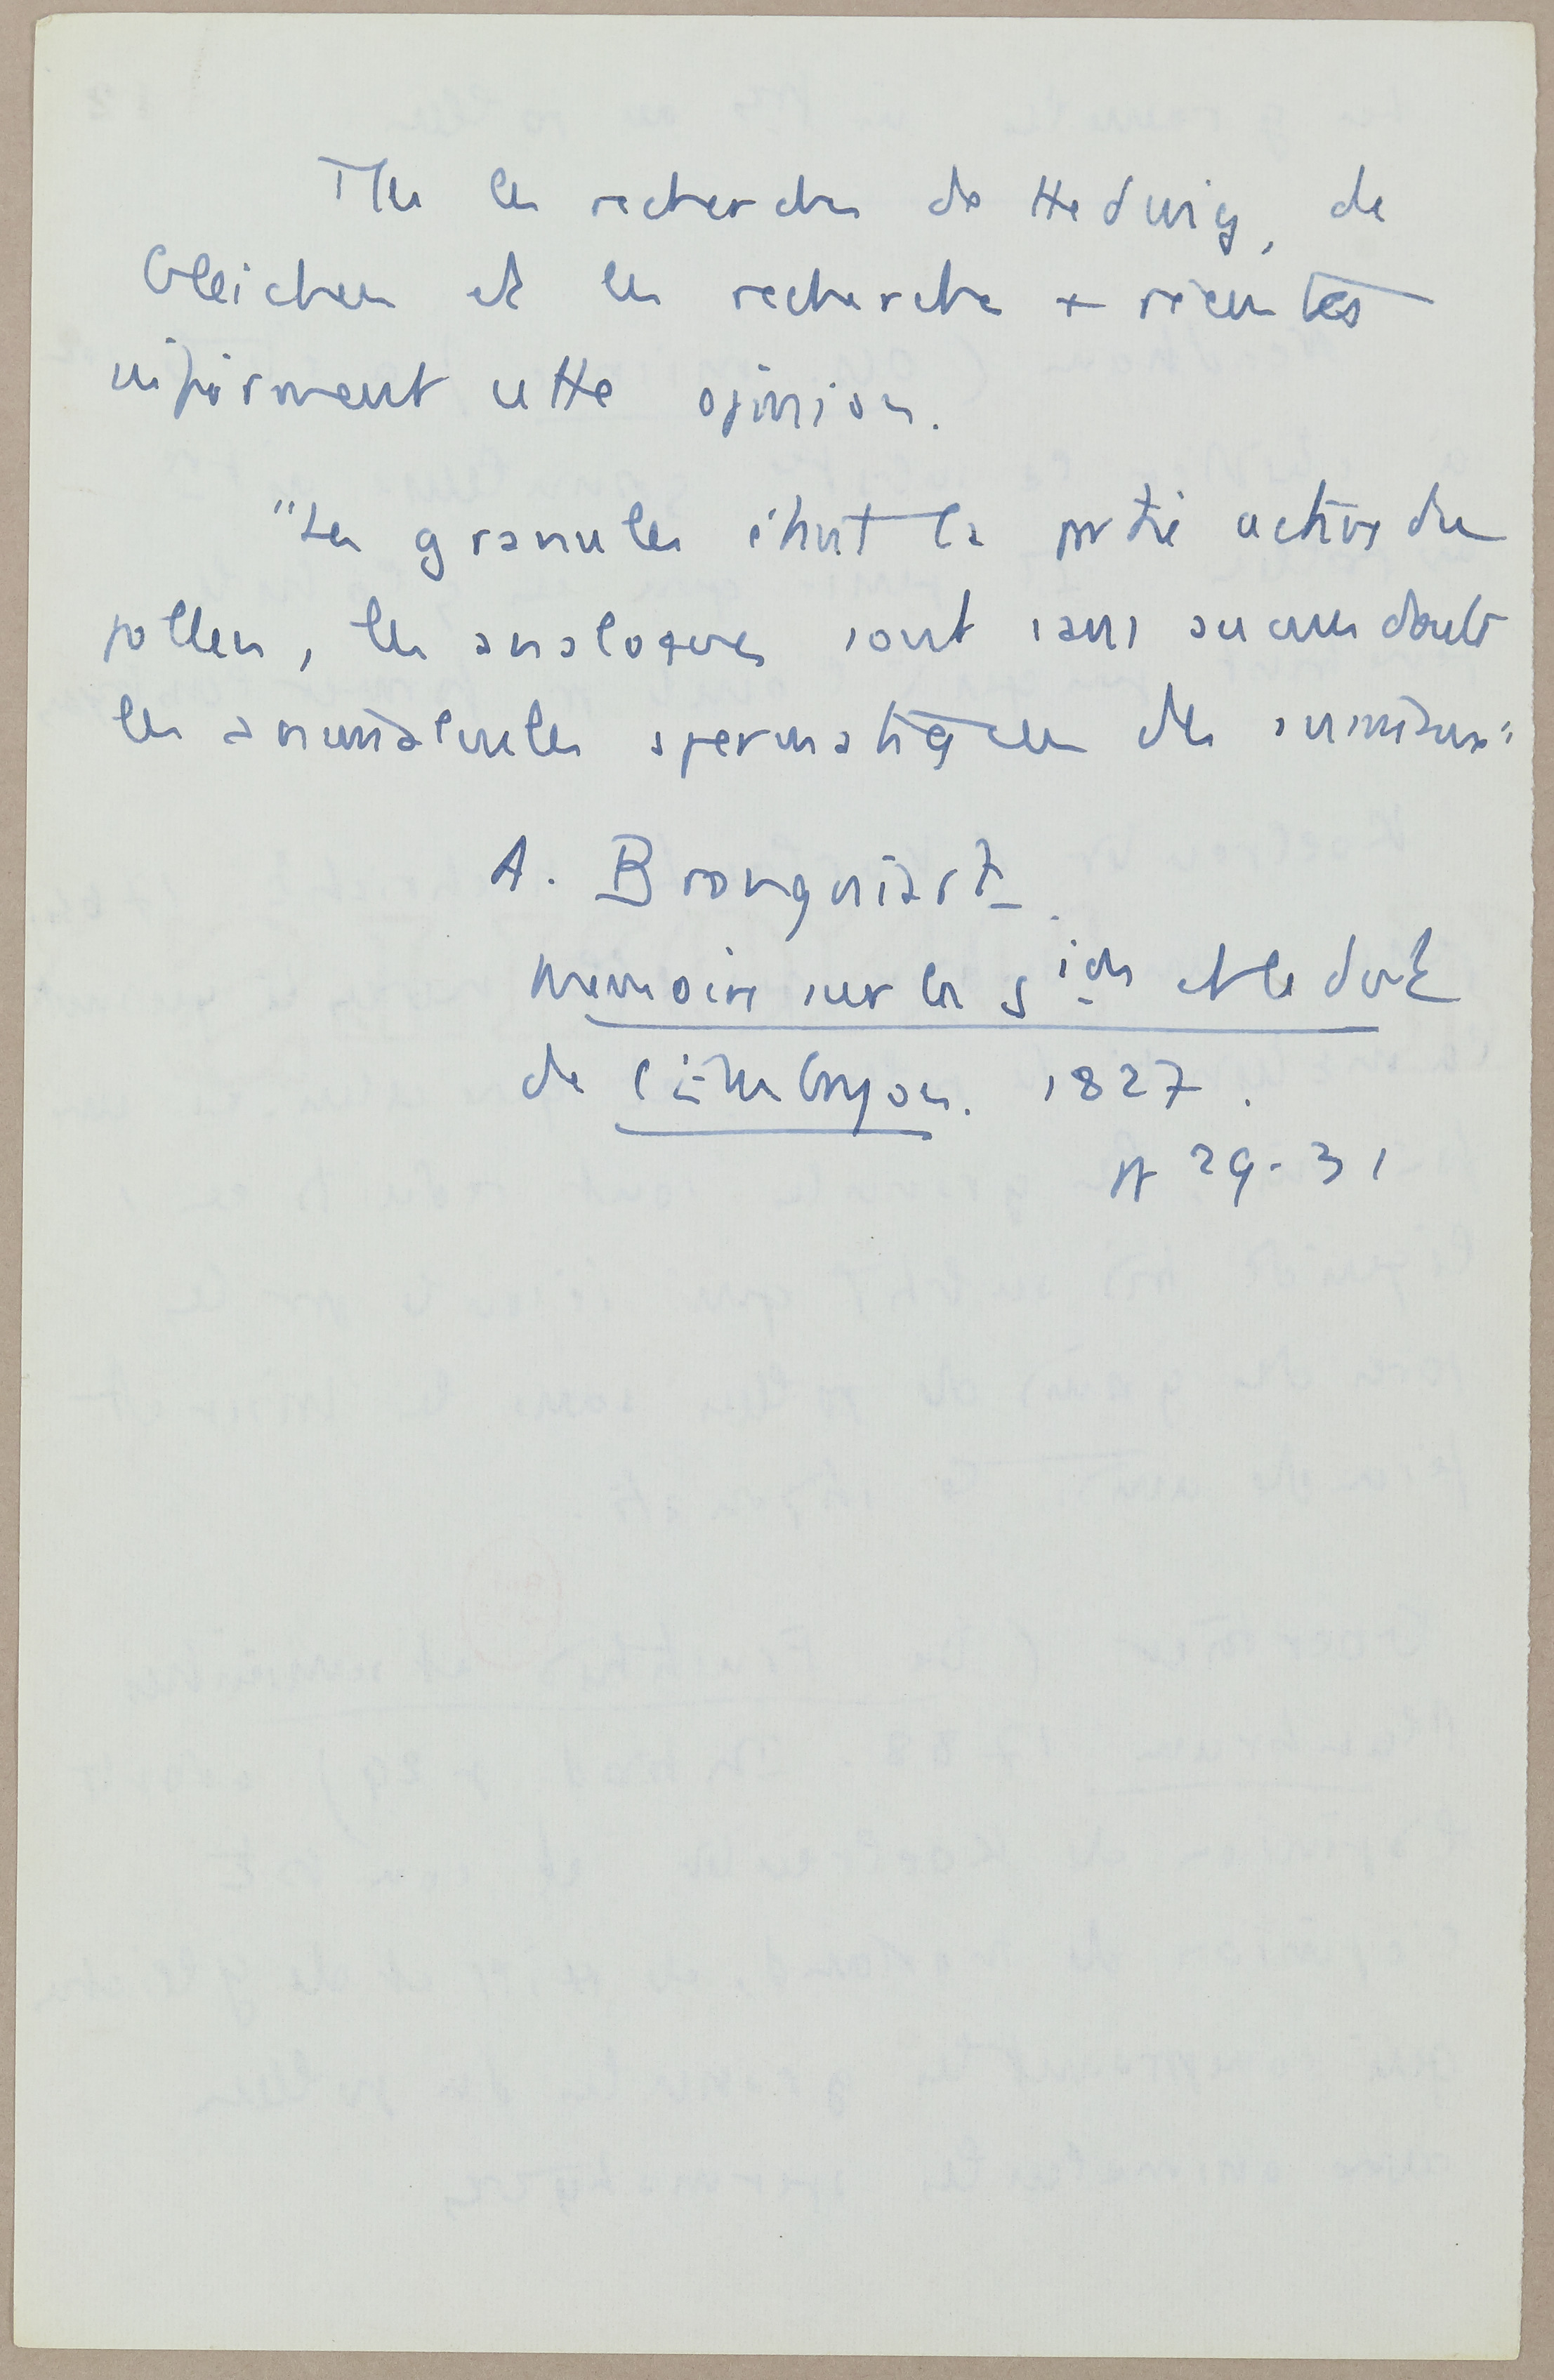 Mais les recherches de Hedwig, de
Gleichen et les recherches + récentes
infirment cette opinion.
"Les granules étant la partie active du
pollen, les analogues sont sans aucun doute
les animalcules spermatiques des animaux"
A. Brongniart.
Mémoire sur la g ion et le dvt
de l'Embryon. 1827.
pp 29-31